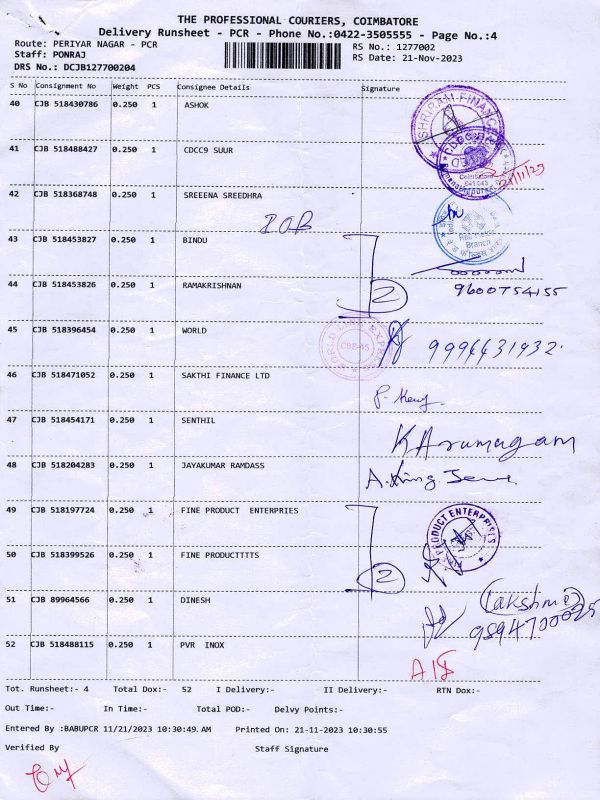 THE PROFESSIONAL COURIERS, COIMBATORE
Delivery Runsheet - PCR - Phone No.:0422-3505555 - Page No.:4
Route: PERIYAR NAGAR - PCR
RS No.: 1277002
Staff: PONRAJ
RS Date: 21-Nov-2023
DRS No.: DCJB127700204
S No Consignment No Weight PCS Consignee Details Signature
40 CJB 518430786 0.250 1 ASHOK
SHRIRAM FINANCE
41 CJB 518488427 0.250 1 CDCC9 SUUR
Coimbatore
641 045
21/11/23
42 CJB 518368748 0.250 1 SREEENA SREEDHRA
IOB
Branch
43 CJB 518453827 0.250 1 BINDU
44 CJB 518453826 0.250 1 RAMAKRISHNAN
2
9600754155
45 CJB 518396454 0.250 1 WORLD
CBE-45
9994431932.
46 CJB 518471052 0.250 1 SAKTHI FINANCE LTD
47 CJB 518454171 0.250 1 SENTHIL
KArumugam
48 CJB 518204283 0.250 1 JAYAKUMAR RAMDASS
49 CJB 518197724 0.250 1 FINE PRODUCT ENTERPRIES
PRODUCT ENTERPRISES
50 CJB 518399526 0.250 1 FINE PRODUCTTTTS
2
51 CJB 89964566 0.250 1 DINESH
Lakshmi
9894700025
52 CJB 518488115 0.250 1 PVR INOX
Tot. Runsheet:- 4 Total Dox:- 52 I Delivery:- II Delivery:- RTN Dox:-
Out Time:- In Time:- Total POD:- Delvy Points:-
Entered By :BABUPCR 11/21/2023 10:30:49 AM Printed On: 21-11-2023 10:30:55
Verified By Staff Signature